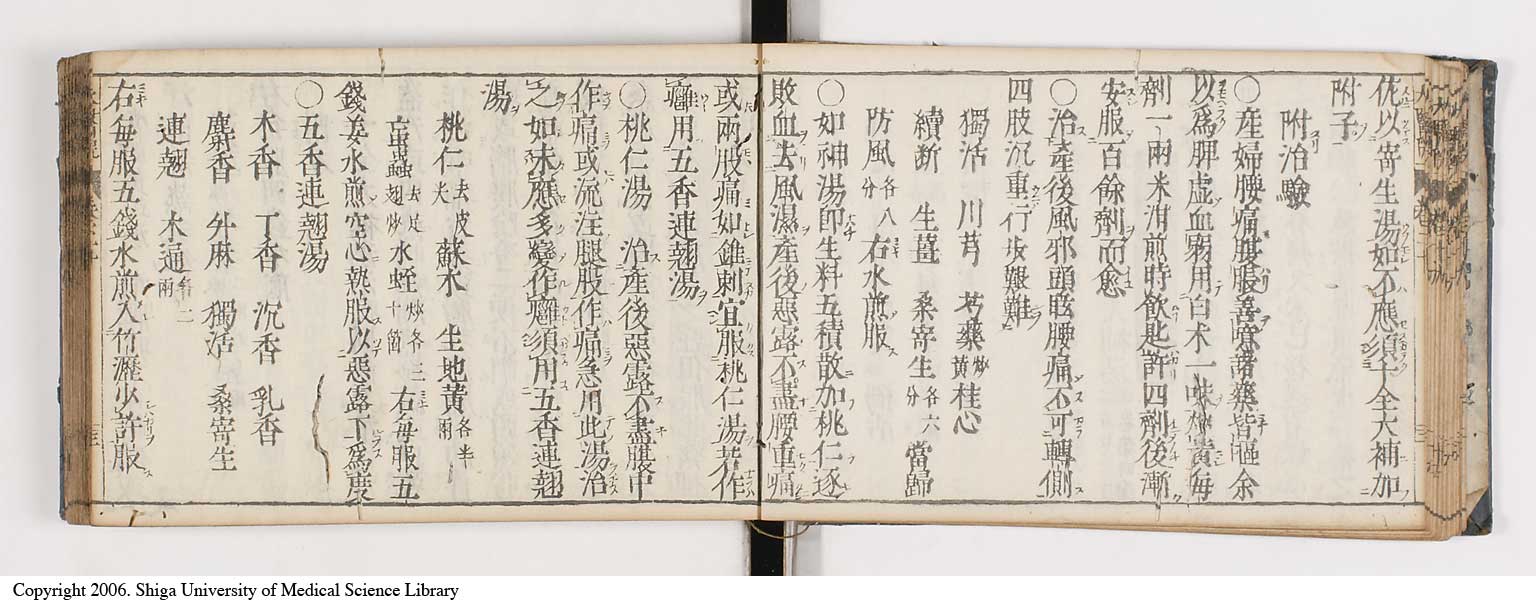 佐以寄生湯如不應須十全大補加
附子
附治驗
○産婦腰痛腹脹善噫諸藥皆嘔余
以為脾虚血弱用白朮一味炒黄每
劑一兩米泔煎時飲匙許四劑後漸
安服百餘劑而愈
○治產後風邪頭眩腰痛不可轉側
四肢沉重行歩艱難
獨活 川芎 芍藥炒黄 桂心
續断 生薑 桑寄生各六分 當歸
防風各八分 右水煎服
○如神湯即生料五積散加桃仁逐
敗血去風濕產後惡露不盡腰重痛
或兩股痛如錐刺宜服桃仁湯若作
癰用五香連翹湯
○桃仁湯 治産後惡露不盡腹中
作痛或流注腿股作痛急用此湯治
之如未應多變作癰須用五香連翹
湯
桃仁去皮尖 蘇木 生地黄各半兩
䖟蟲去足翅炒 水蛭炒各三十箇 右每服五
錢姜水煎空心熱服以惡露下為度
○五香連翹湯
木香 丁香 沉香 乳香
麝香 升麻 獨活 桑寄生
連翹 木通各二兩
右每服五錢水煎入竹瀝少許服
Copyright 2006. Shiga University of Medical Science Library